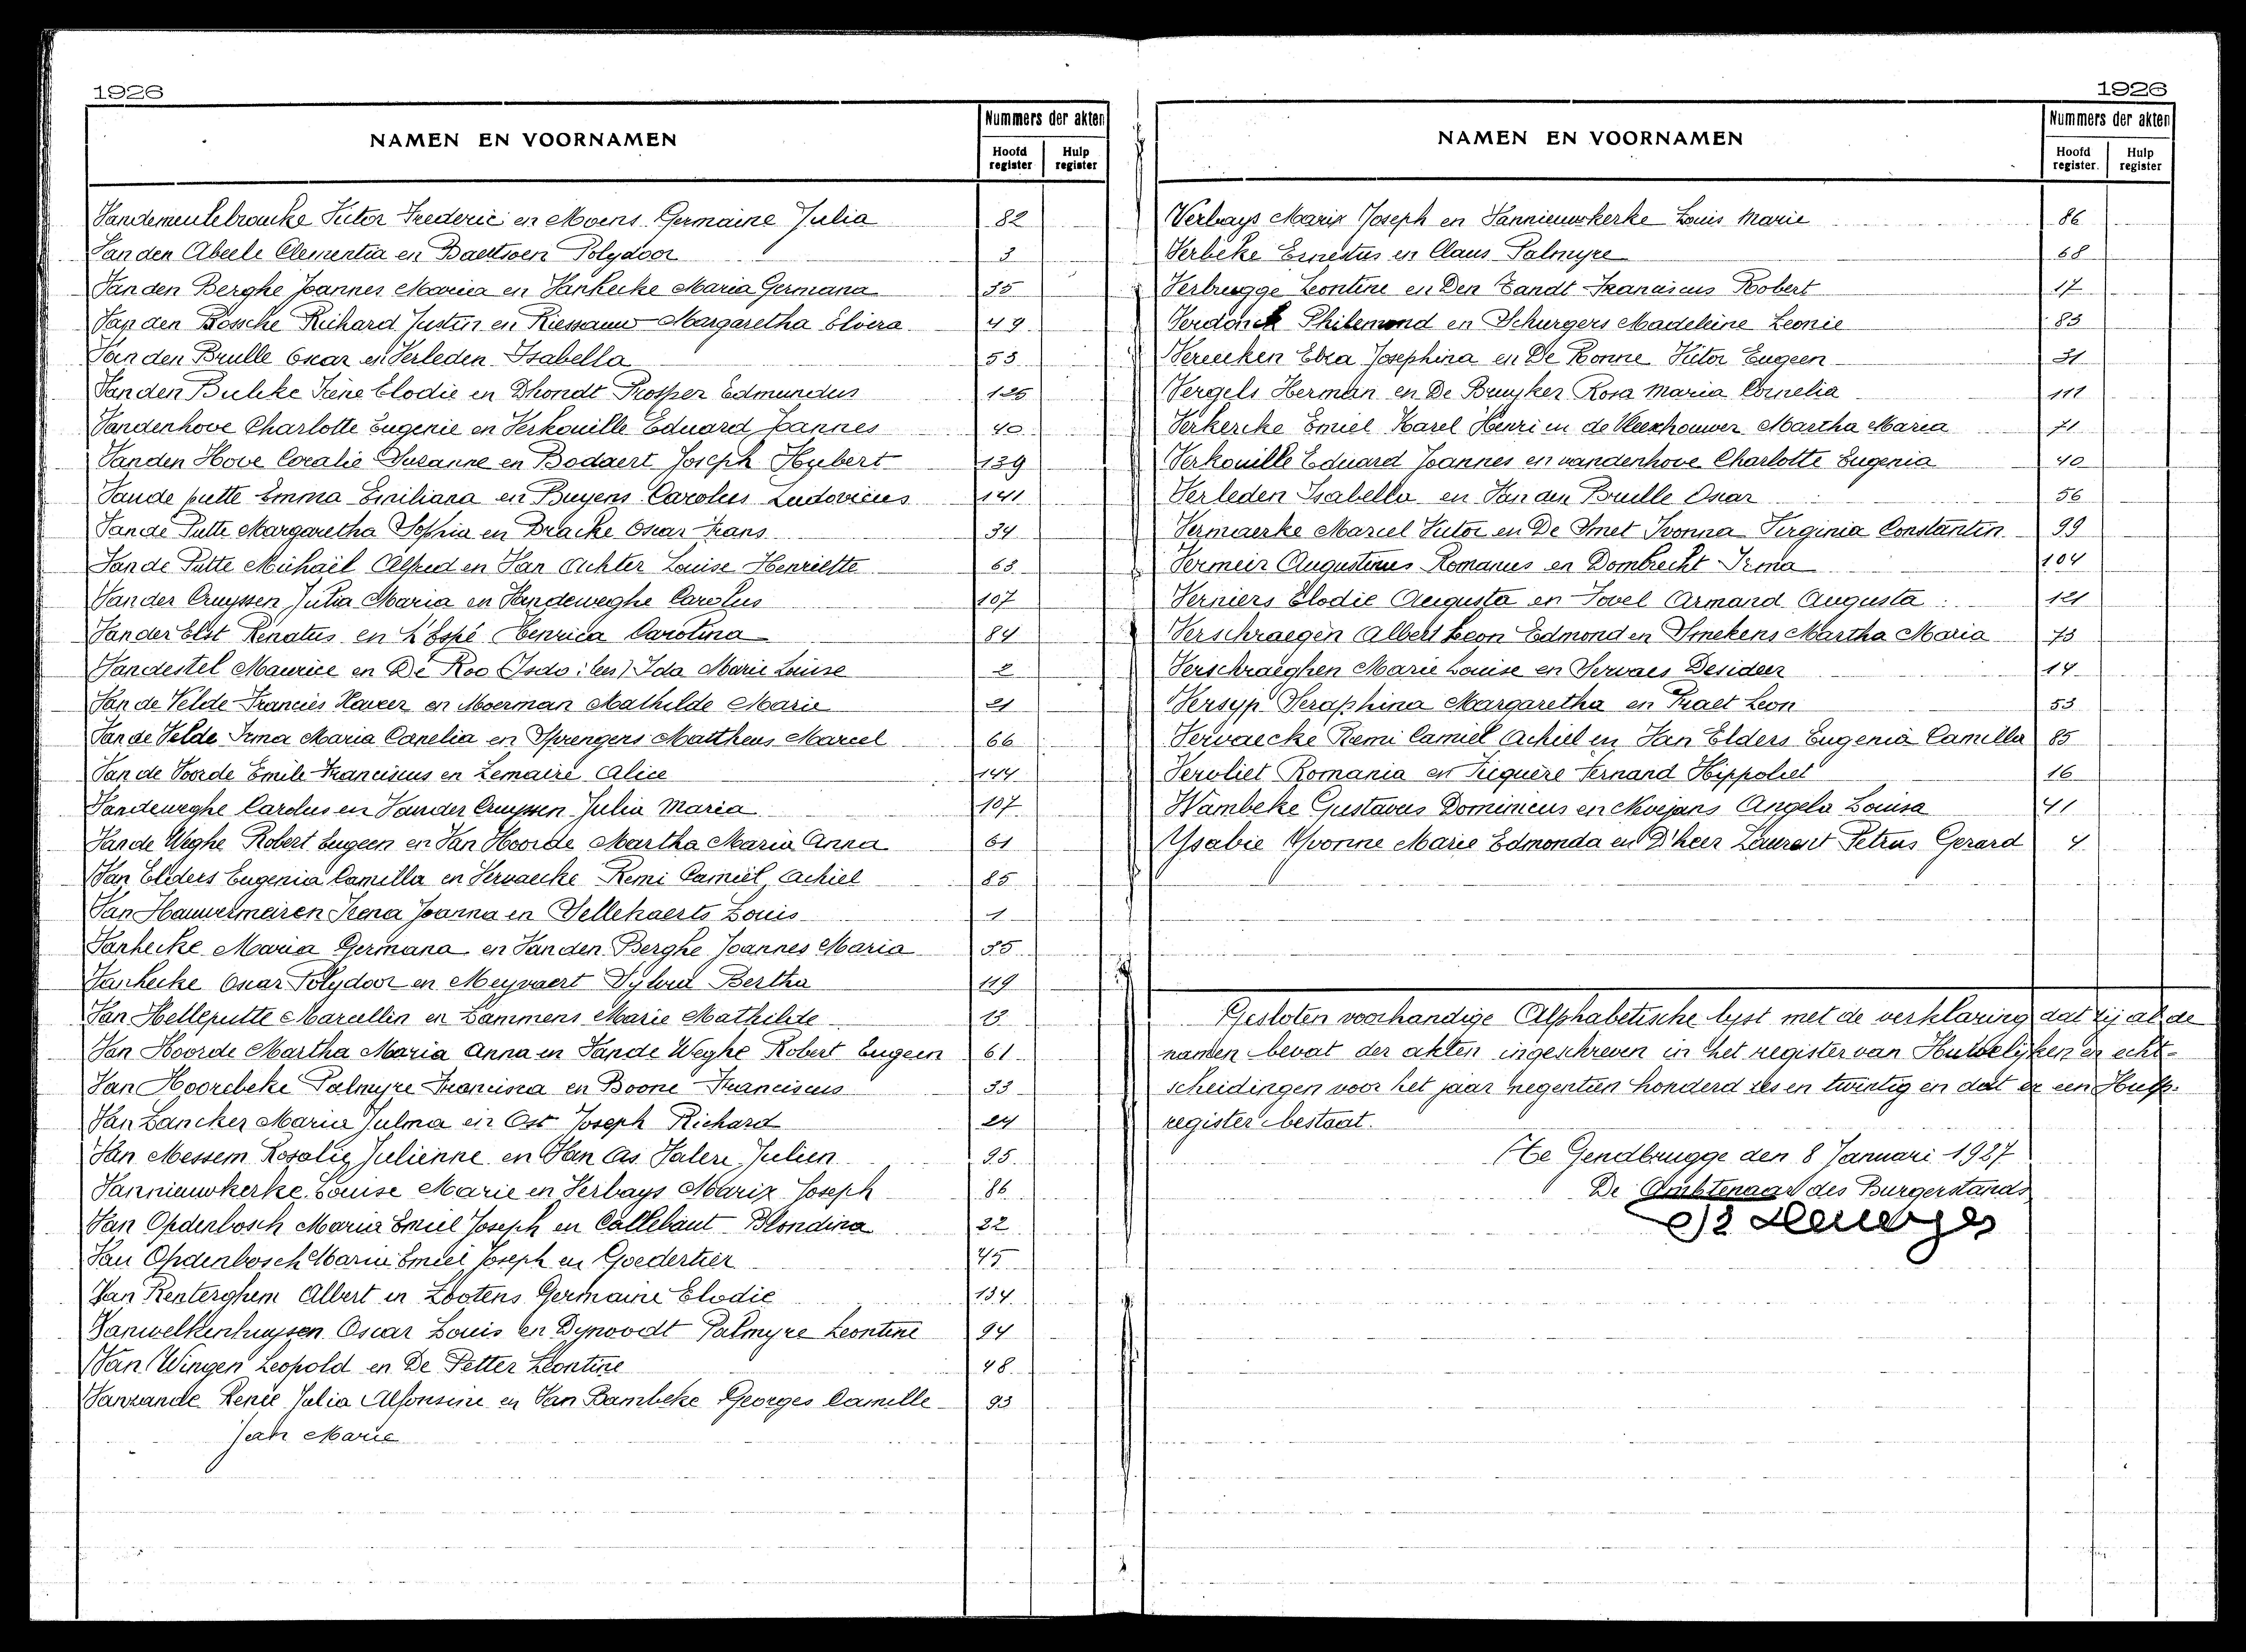 1926
NAMEN EN VOORNAMEN
Nummers der akten
Hoofd register
Hulp register
Vandemeulebroucke Victor Frederic en Moens Germaine Julia 82
Van den Abeele Clementia en Baettoen Polydoor 3
Van den Berghe Joannes Maria en Vanhecke Maria Germana 35
Van den Bossche Richard Justin en Riessauw Margaretha Elvira 49
Van den Brulle Oscar en Verleden Isabella 53
Van den Bulcke Irène Elodie en Dhondt Prosper Edmundus 126
Vandenhove Charlotte Eugenie en Verkouille Eduard Joannes 40
Vanden Hove Coralie Suzanne en Bodaert Joseph Hubert 139
Vande putte Emma Emiliana en Buyens Carolus Ludovicus 141
Van de Putte Margaretha Sophia en Dracke Oscar Frans 34
Van de Putte Michaël Alfred en Van Achter Louise Henriette 63
Van der Cruyssen Julia Maria en Vandeweghe Carolus 107
Van der Elst Renatus en L'Espé Henrica Carolina 84
Vandestel Maurice en De Roo Ida Marie Louise 2
Van de Velde Francies Xaveer en Moerman Mathilde Marie 21
Van de Velde Irma Maria Canelia en Sprengers Mattheus Marcel 66
Van de Voorde Emile Franciscus en Lemaire Alice 144
Vandeweghe Carolus en Vander Cruyssen Julia Maria 107
Van de Weghe Robert Eugeen en Van Hoorde Martha Maria Anna 61
Van Elders Eugenia Camilla en Vervaecke Remi Camiel Achiel 85
Van Hauwermeiren Irena Joanna en Vellehaerts Louis 1
Vanhecke Maria Germana en Van den Berghe Joannes Maria 35
Vanhecke Oscar Polydoor en Meyvaert Sylvia Bertha 119
Van Helleputte Marcellin en Lammens Marie Mathilde 13
Van Hoorde Martha Maria Anna en Van de Weghe Robert Eugeen 61
Van Hoorebeke Palmyre Francisca en Boone Franciscus 33
Van Lancker Maria Julma en Ost Joseph Richard 24
Van Messem Rosalie Julienne en Van As Valere Julien 95
Vannieuwkerke Louise Marie en Verbays Marix Joseph 86
Van Opdenbosch Maria Emiel Joseph en Callebaut Blondina 22
Van Opdenbosch Maria Emiel Joseph en Goedertier 45
Van Renterghem Albert en Lootens Germaine Elodie 134
Vanwelkenhuysen Oscar Louis en Dynoodt Palmyre Leontine 94
Van Wingen Leopold en De Petter Leontine 48
Vanzande Renée Julia Alfonsine en Van Bambeke Georges Camille 93
Jean Marie
1926
NAMEN EN VOORNAMEN
Nummers der akten
Hoofd register.
Hulp register
Verbays Marix Joseph en Vannieuwkerke Louis Marie 86
Verbeke Ernestus en Claus Palmyre 68
Verbrugge Leontine en Den Tandt Franciscus Robert 17
Verdonck Philemond en Schurgers Madeleine Leonie 83
Vereecken Elza Josephina en De Bonne Victor Eugeen 31
Vergels Herman en De Bruyker Rosa Maria Cornelia 111
Verkercke Emiel Karel Henri en de Vleeschouwer Martha Maria 71
Verkouille Eduard Joannes en vandenhove Charlotte Eugenia 40
Verleden Isabella en Van den Brulle Oscar 56
Vermaerke Marcel Victor en De Smet Ivonna Virginia Constantin 99
Vermeir Augustinus Romanus en Dombrecht Irma 104
Verniers Elodie Augusta en Tovel Armand Augusta 121
Verschraegen Albert Leon Edmond en Smekens Martha Maria 73
Verschraeghen Marie Louise en Servaes Desideer 14
Versyp Seraphina Margaretha en Praet Leon 53
Vervaecke Remi Camiel Achiel en Van Elders Eugenia Camilla 85
Vervliet Romania en Piequère Fernand Hippoliet 16
Wambeke Gustavus Dominicus en Mvejans Angela Louisa 41
Ysabie Yvonne Marie Edmonda en D'heer Laurent Petrus Gerard 4
Gesloten voorhandige Alphabetische lyst met de verklaring dat zij al de
namen bevat der akten ingeschreven in het register van Huwelyken en echt-
scheidingen voor het jaar negentien honderd zes en twintig en dat er een Hulp-
register bestaat.
Te Gendbrugge den 8 Januari 1987
De Ambtenaar des Burgerstands